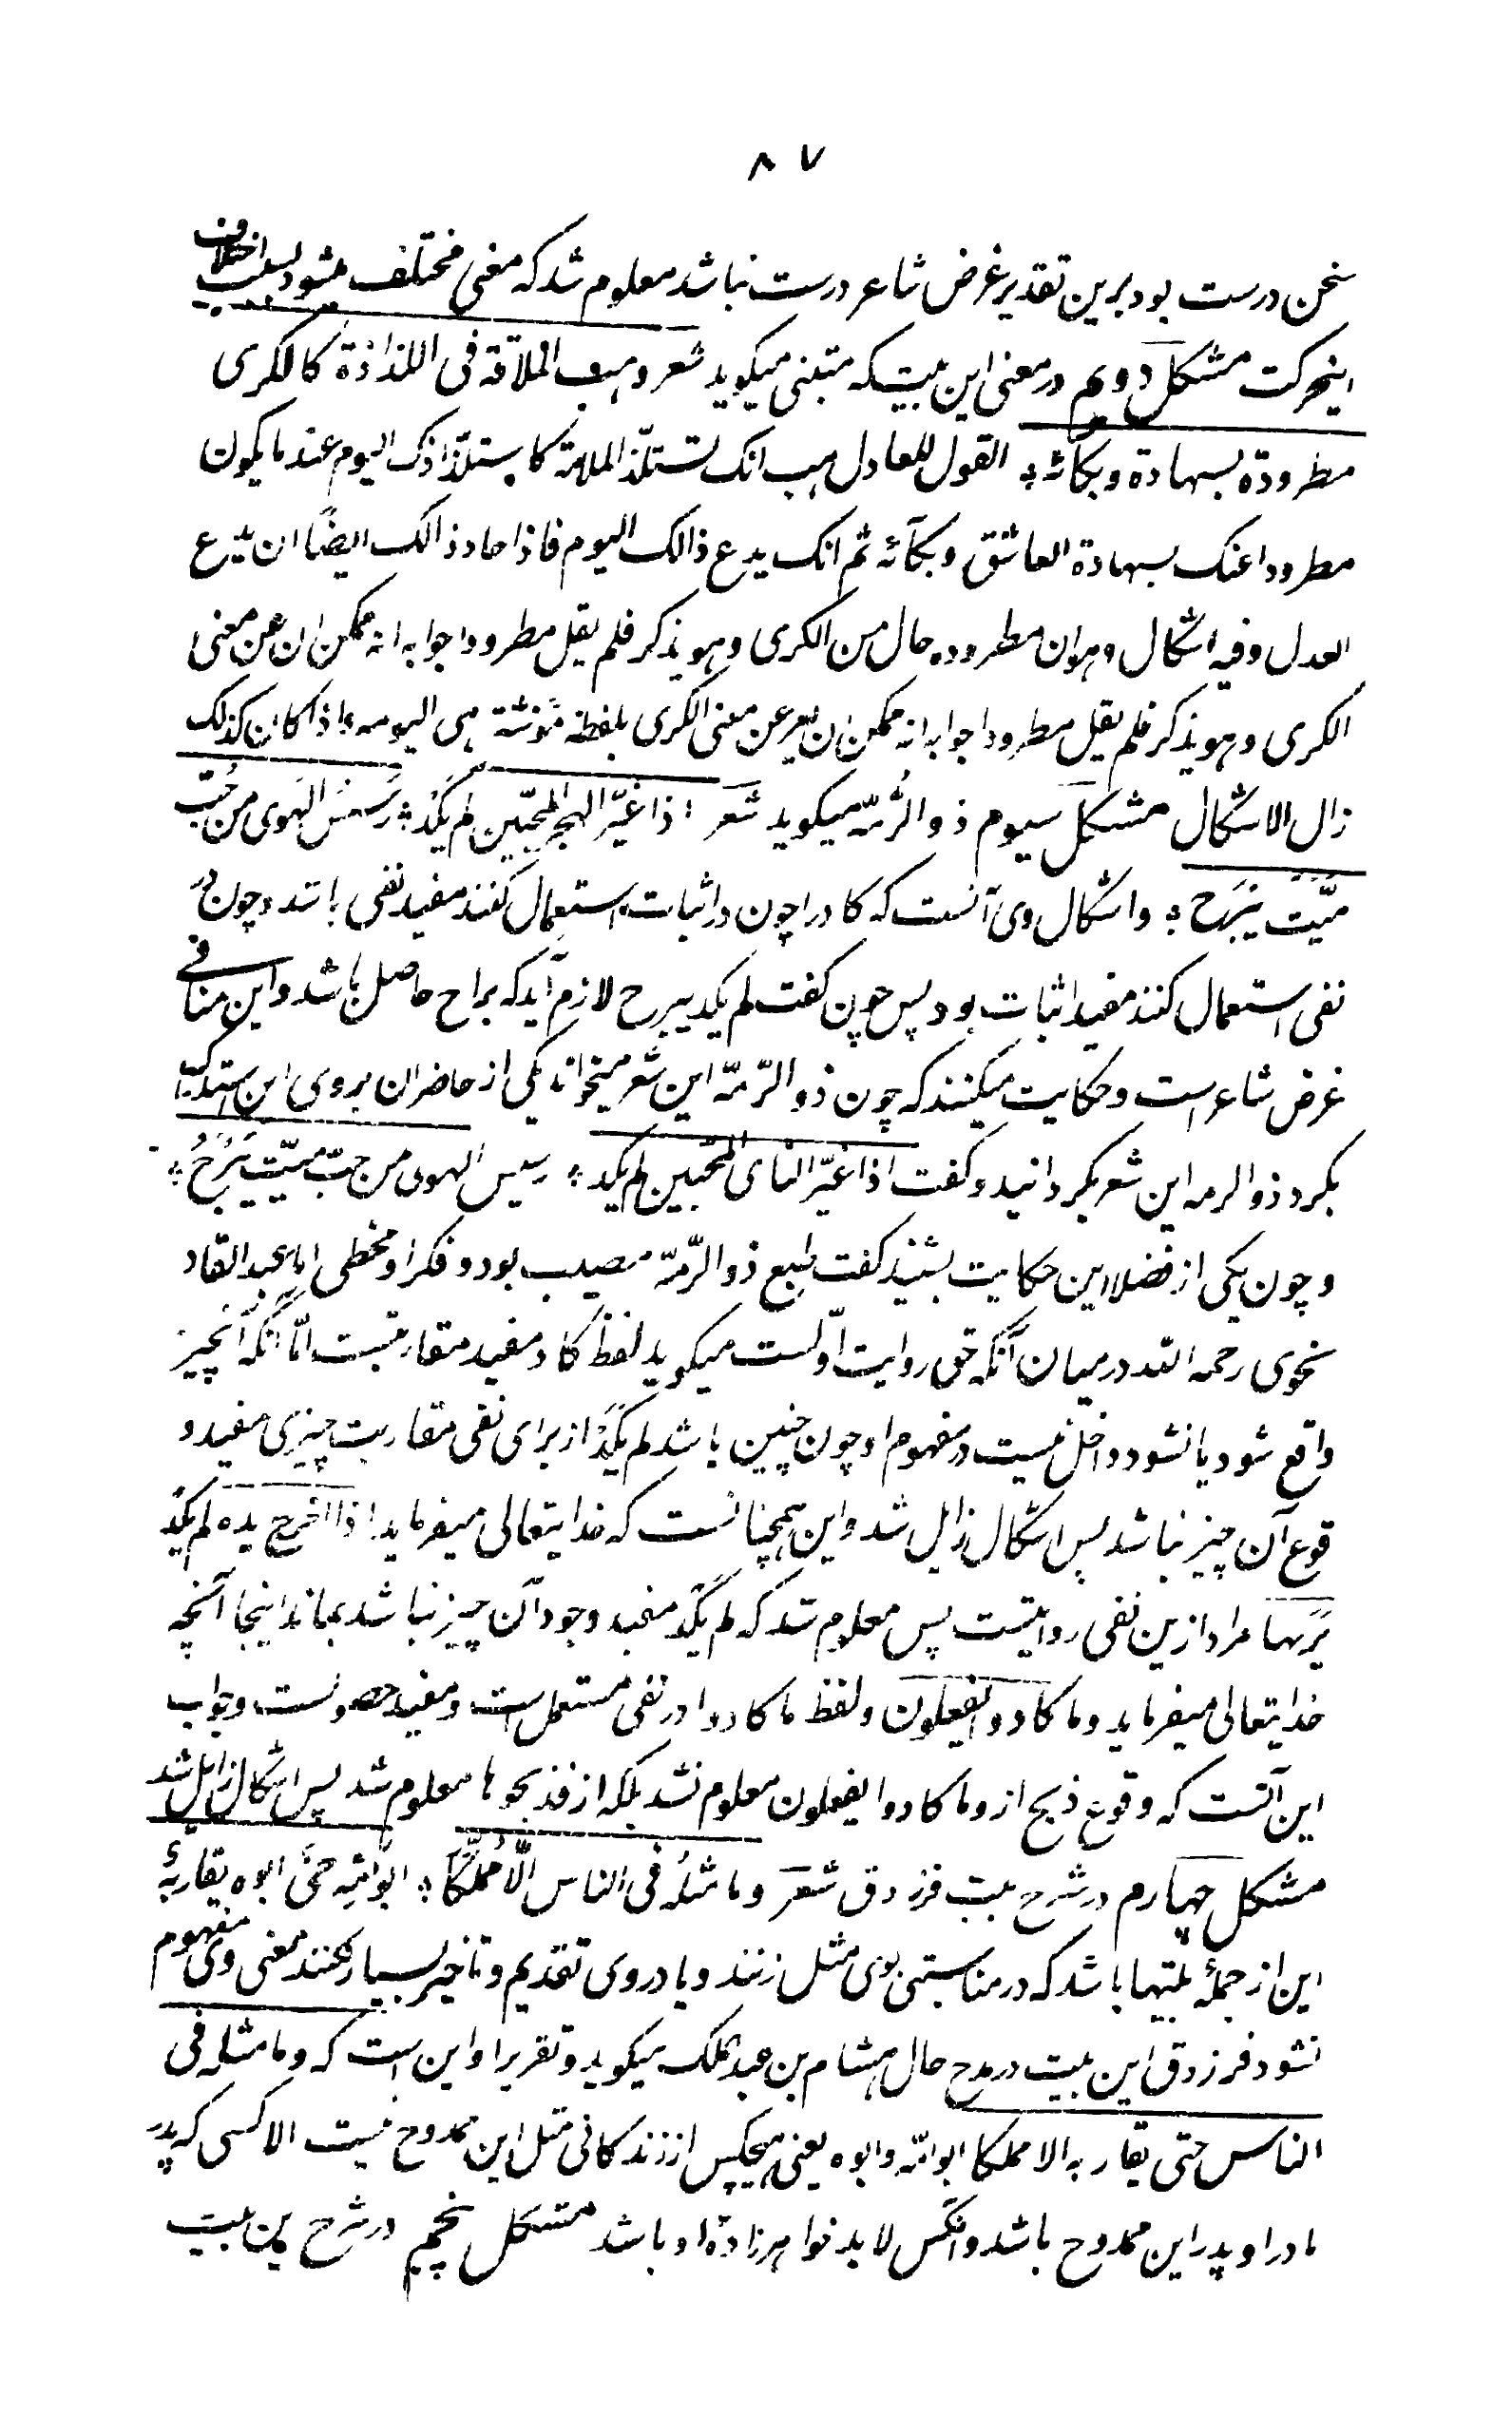 ۸۷
سخن درست بود برین تقدیر غرض شاعر درست نباشد معلوم شد که معنی مختلف میشود بسبب اختلاف
اینحرکت مشکل دویم در معنی این بیت که متبنی میگوید شعر وهب الملاقة فی اللذاذة کالکری
مطرودة بسهاده وبکائه ؛ القول للعادل هب انک تستلذ الملامة کما یستلذ ذلک الیوم عند ما یکون
مطرودا عنک بسهادة العاشق وبکآئه ثم انک یدع ذالک الیوم فاذا حاد ذالک ایضًا ان یدع
العدل وفیه اشکال وهو ان مطروده حال من الکری وهو یذکر فلم یقل مطرودا جوابه انه ممکن ان عن معنی
الکری وهو یذکر فلم یقل مطرودا جوابه انه ممکن ان یعبر عن معنی الکری بلفظة مؤنثة هی الیومه واذا کان کذلک
زال الاشکال مشکل سیوم ذوالرُّمّه میگوید شعر اذا غیّر الهجر المحبّین لم یکد ؛ رسیس الهوی من حُبّ
میّت یبرح ؛ واشکال وی آنست که کاد را چون در اثبات استعمال کنند مفید نفی باشد وچون در
نفی استعمال کنند مفید اثبات بود پس چون گفت لم یکد یبرح لازم آید که براح حاصل باشد واین منافی
غرض شاعر است وحکایت میکنند که چون ذوالرّمّه این شعر میخواند یکی از حاضران بروی این استدراک
بکرد ذوالرمه این شعر بگردانید وگفت اذا غیّر النای المحبین لم یکد ؛ رسیس الهوی من حب میّت یَبْرَحُ ؛
وچون یکی از فضلا این حکایت بشنید گفت طبع ذوالرّمّه مصیب بود وفکر او مخطی امام عبدالقاد
نحوی رحمه الله در میان آنکه حق روایت اوّلست میگوید لفظ کاد مفید مقاربتست امّا آنکه آنچیز
واقع شود یا نشود داخل نیست در مفهوم او چون چنین باشد لم یکد از برای نفی مقاربت چیزی مفید و
قوع آن چیز نباشد پس اشکال زایل شد واین همچنانست که خدایتعالی میفرماید اذا اخرج یده لم یکد
یرَیها مراد ازین نفی رویتست پس معلوم شد که لم یکد مفید وجود آن چیز نباشد بماند اینجا آنچه
خدایتعالی میفرماید وما کادوا یفعلون ولفظ ما کادوا در نفی مستعمل است ومفید حصولست وجواب
این آنست که وقوع ذبح از وما کادوا یفعلون معلوم نشد بلکه از فذبحوها معلوم شد پس اشکال زایل شد
مشکل چهارم در شرح بیت فرزدق شعر وما مثلُه فی الناس الّا مُمَلّکًا ؛ ابو امّه حیّ ابوه یقاربُه
این از جملهٔ بیتها باشد که در مناسبتی بوی مثل زنند ویا در وی تقدیم وتأخیر بسیار کنند معنی وی مفهوم
نشود فرزدق این بیت در مدح حال هشام بن عبدالملک میگوید وتقریر او این است که وما مثله فی
الناس حتی یقاربه الا مملکا ابو امّه وابوه یعنی هیچکس از زندگانی مثل این ممدوح نیست الا کسی که پدر
مادر او پدر این ممدوح باشد وآنکس لابد خواهرزادهٔ او باشد مشکل پنجم در شرح این بیت